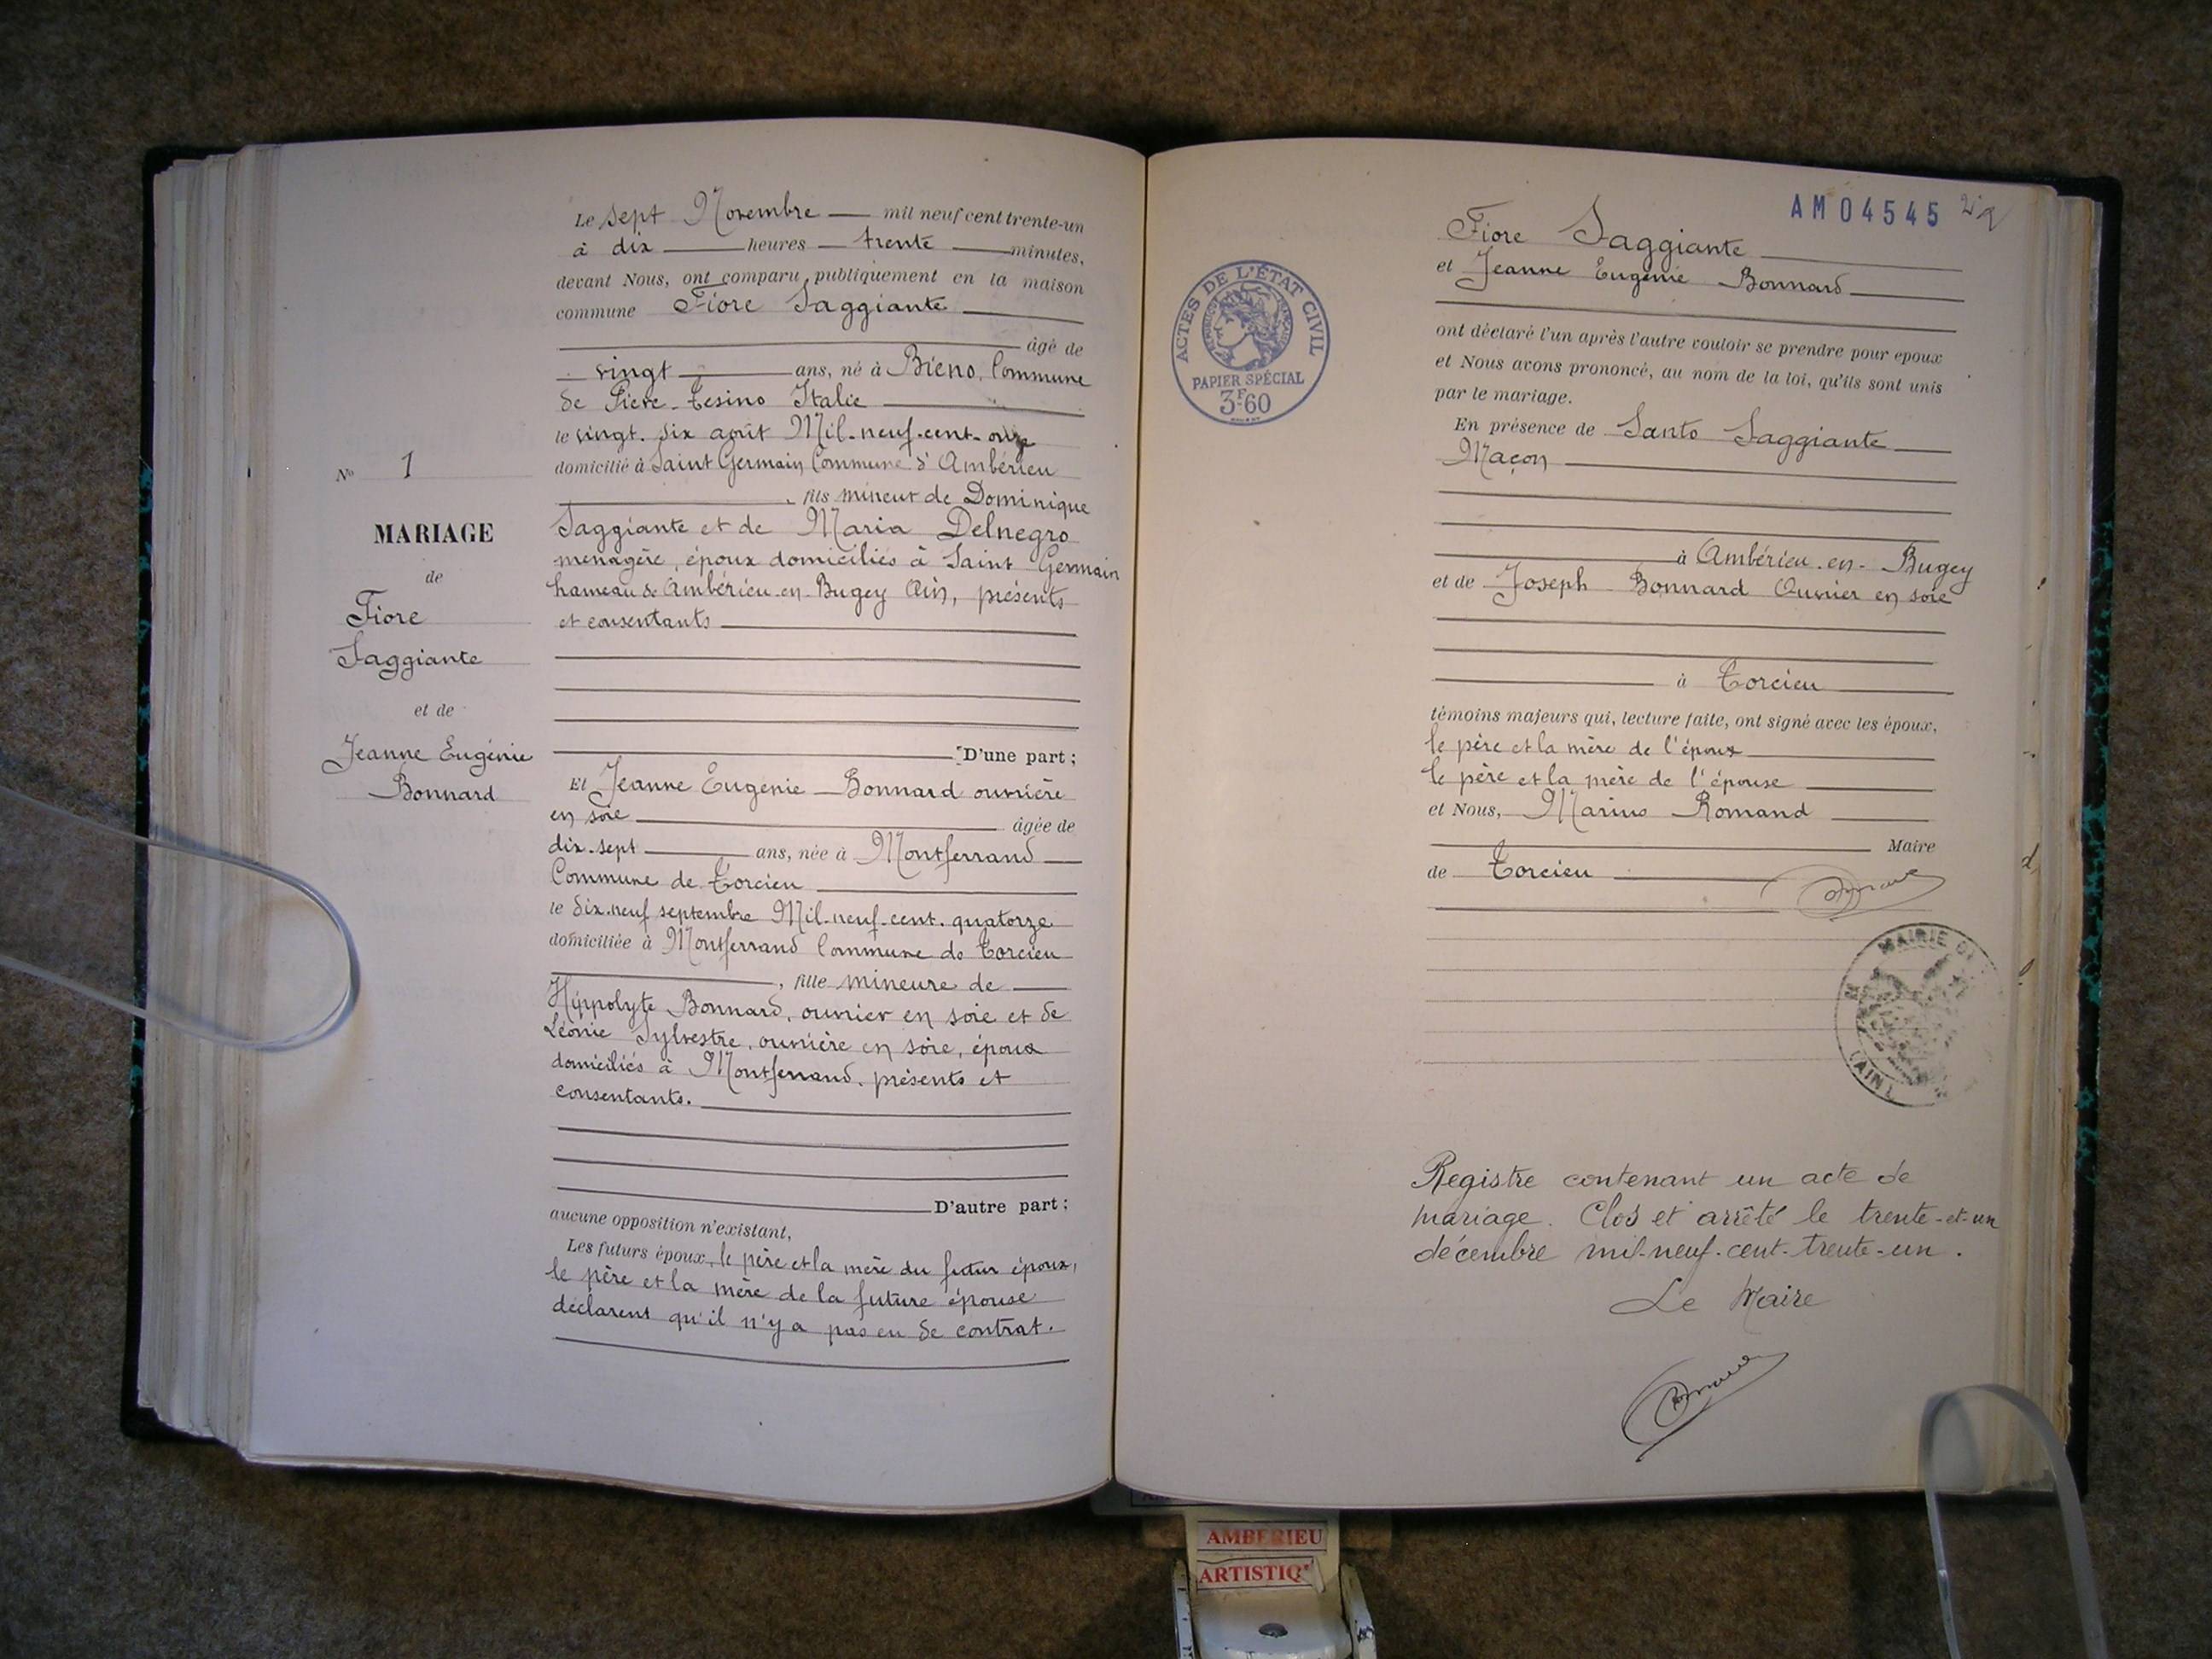 Le sept Novembre mil neuf cent trente-un
à dix heures trente minutes,
devant Nous, ont comparu publiquement en la maison
commune Fiore Saggiante
âgé de
vingt ans, né à Bieno, Commune
de Pieve-Tesino Italie
le vingt-six août Mil-neuf-cent-onze
domicilié à Saint Germain Commune d'Ambérieu
, fils mineur de Dominique
Saggiante et de Maria Delnegro
ménagère, époux domiciliés à Saint Germain
hameau de Ambérieu-en-Bugey Ain, présents
et consentants
D'une part ;
Et Jeanne Eugénie Bonnard ouvrière
en soie âgée de
dix-sept ans, née à Montferrand
Commune de Torcieu
le dix-neuf septembre Mil-neuf-cent-quatorze
domiciliée à Montferrand Commune de Torcieu
, fille mineure de
Hippolyte Bonnard, ouvrier en soie et de
Léonie Sylvestre, ouvrière en soie, époux
domiciliés à Montferrand, présents et
consentants.
D'autre part ;
aucune opposition n'existant,
Les futurs époux, le père et la mère du futur époux,
le père et la mère de la future épouse
déclarent qu'il n'y a pas eu de contrat.
No 1
MARIAGE
de
Fiore
Saggiante
et de
Jeanne Eugénie
Bonnard
AM 04545
ACTES DE L'ÉTAT CIVIL
RÉPUBLIQUE FRANÇAISE
PAPIER SPÉCIAL
3F60
Fiore Saggiante
et Jeanne Eugénie Bonnard
ont déclaré l'un après l'autre vouloir se prendre pour epoux
et Nous avons prononcé, au nom de la loi, qu'ils sont unis
par le mariage.
En présence de Santo Saggiante
Maçon
à Ambérieu-en-Bugey
et de Joseph Bonnard Ouvrier en soie
à Torcieu
témoins majeurs qui, lecture faite, ont signé avec les époux,
le père et la mère de l'époux
le père et la mère de l'épouse
et Nous, Marius Romand
Maire
de Torcieu
MAIRIE DE
(AIN)
Registre contenant un acte de
mariage. Clos et arrêté le trente-et-un
décembre mil-neuf-cent-trente-un.
Le Maire
AMBERIEU
ARTISTIQ